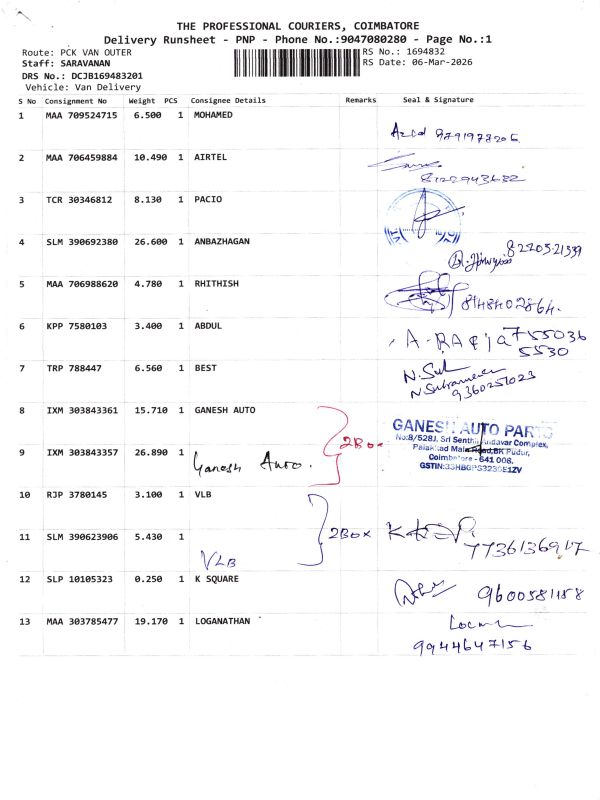 THE PROFESSIONAL COURIERS, COIMBATORE
Delivery Runsheet - PNP - Phone No.:9047080280 - Page No.:1
Route: PCK VAN OUTER
RS No.: 1694832
Staff: SARAVANAN
RS Date: 06-Mar-2026
DRS No.: DCJB169483201
Vehicle: Van Delivery
S No Consignment No Weight PCS Consignee Details Remarks Seal & Signature
1 MAA 709524715 6.500 1 MOHAMED
Azad 9791978206
2 MAA 706459884 10.490 1 AIRTEL
8122943682
3 TCR 30346812 8.130 1 PACIO
4 SLM 390692380 26.600 1 ANBAZHAGAN
8220521539
5 MAA 706988620 4.780 1 RHITHISH
8148402864.
6 KPP 7580103 3.400 1 ABDUL
A. RAFIQ 755036
5530
7 TRP 788447 6.560 1 BEST
N. Sub
9360251023
8 IXM 303843361 15.710 1 GANESH AUTO
2Box
GANESH AUTO PARTS
No:8/528J, Sri Senthil Andavar Complex,
Palakkad Main Road,BK Pudur,
Coimbatore - 641 008.
9 IXM 303843357 26.890 1
Ganesh Auto.
10 RJP 3780145 3.100 1 VLB
2Box
7736136917
11 SLM 390623906 5.430 1
VLB
12 SLP 10105323 0.250 1 K SQUARE
9600581158
13 MAA 303785477 19.170 1 LOGANATHAN
9944647156